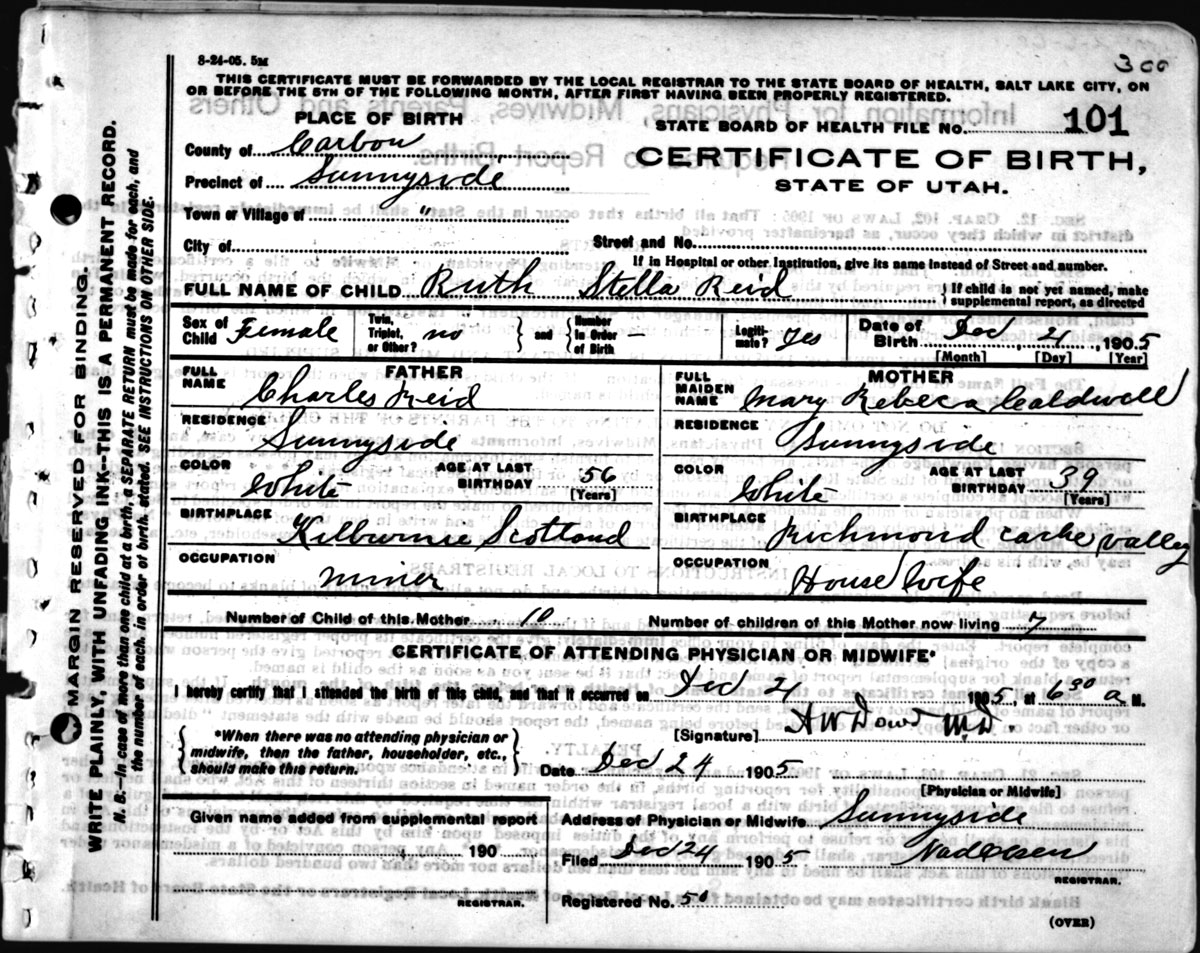 8-24-05. 5M
300
THIS CERTIFICATE MUST BE FORWARDED BY THE LOCAL REGISTRAR TO THE STATE BOARD OF HEALTH, SALT LAKE CITY, ON
OR BEFORE THE 5TH OF THE FOLLOWING MONTH, AFTER FIRST HAVING BEEN PROPERLY REGISTERED.
PLACE OF BIRTH
STATE BOARD OF HEALTH FILE NO. 101
County of Carbon
CERTIFICATE OF BIRTH,
Precinct of Sunnyside
STATE OF UTAH.
Town or Village of "
City of
Street and No.
If in Hospital or other Institution, give its name instead of Street and number.
FULL NAME OF CHILD Ruth Stella Reid
} If child is not yet named, make
supplemental report, as directed
Sex of Child Female
Twin, Triplet, or Other? no
{ and }
Number in Order of Birth —
Legitimate? Yes
Date of Birth Dec 21, 1905
[Month] [Day] [Year]
FATHER
MOTHER
FULL NAME Charles Reid
FULL MAIDEN NAME Mary Rebeca Caldwell
RESIDENCE Sunnyside
RESIDENCE Sunnyside
COLOR White
AGE AT LAST BIRTHDAY 56
[Years]
COLOR White
AGE AT LAST BIRTHDAY 39
[Years]
BIRTHPLACE Kilburnie Scotland
BIRTHPLACE Richmond Cache Valley
OCCUPATION miner
OCCUPATION House Wife
Number of Child of this Mother 10
Number of children of this Mother now living 7
CERTIFICATE OF ATTENDING PHYSICIAN OR MIDWIFE*
I hereby certify that I attended the birth of this child, and that it occurred on Dec 21 1905, at 6 30 a M.
[Signature] A W Dowd M.D.
{ *When there was no attending physician or
midwife, then the father, householder, etc.,
should make this return. }
Date Dec 24 1905
[Physician or Midwife]
Given name added from supplemental report
Address of Physician or Midwife Sunnyside
190
Filed Dec 24 1905
REGISTRAR.
REGISTRAR.
Registered No. 50
(OVER)
MARGIN RESERVED FOR BINDING
WRITE PLAINLY, WITH UNFADING INK—THIS IS A PERMANENT RECORD.
N. B.—In case of more than one child at a birth, a SEPARATE RETURN must be made for each, and
the number of each, in order of birth, stated. SEE INSTRUCTIONS ON OTHER SIDE.